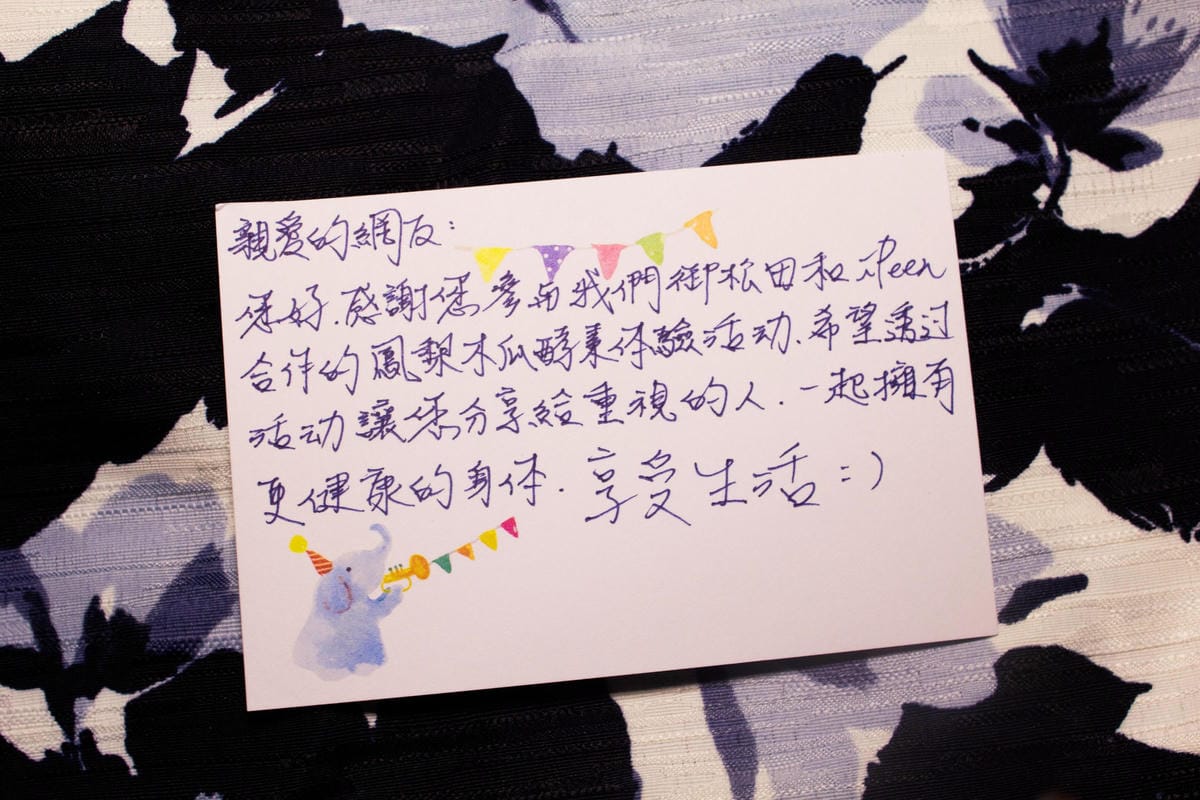 親愛的網友：
您好.感謝您參与我們御松田和iPeen
合作的鳳梨木瓜酵素体驗活动.希望透过
活动讓您分享給重視的人.一起擁有
更健康的身体.享受生活:)